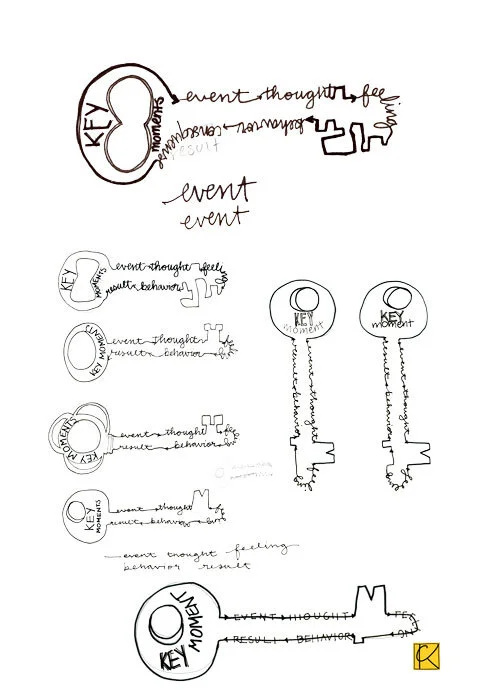 KEY moments event thought feeling
behavior consequence
result
event
event
KEY MOMENTS event thought feeling
result behavior
KEY MOMENTS event thought feeling
result behavior
KEY MOMENTS event thought feeling
result behavior
KEY MOMENTS event thought feeling
result behavior
KEY moment
event thought feeling
result behavior
KEY moment
event thought feeling
result behavior
event thought feeling
behavior result
KEY MOMENT EVENT THOUGHT FEELING
RESULT BEHAVIOR
CK